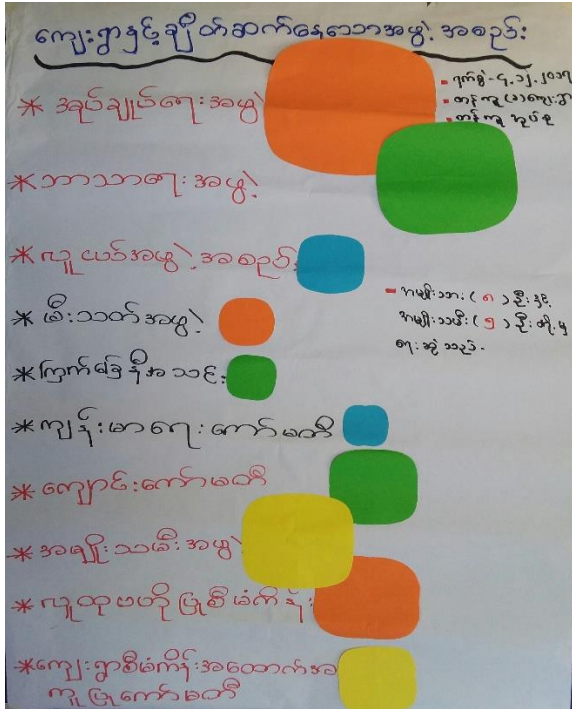 ကျေးရွာနှင့်ချိတ်ဆက်နေသောအဖွဲ့အစည်း
- ရက်စွဲ - ၄.၁၂.၂၀၁၇
* အုပ်ချုပ်ရေးအဖွဲ့
* ဘာသာရေးအဖွဲ့
* လူငယ်အဖွဲ့အစည်း
- အမျိုးသား (၈) ဦးနှင့်
အမျိုးသမီး (၅) ဦးတို့မှ
ရေးဆွဲသည်.
* မီးသတ်အဖွဲ့
* ကြက်ခြေနီအသင်း
* ကျန်းမာရေးကော်မတီ
* ကျောင်းကော်မတီ
* အမျိုးသမီးအဖွဲ့
* လူထုဗဟိုပြုစီမံကိန်း
* ကျေးရွာစီမံကိန်းအထောက်အ
ကူပြုကော်မတီ